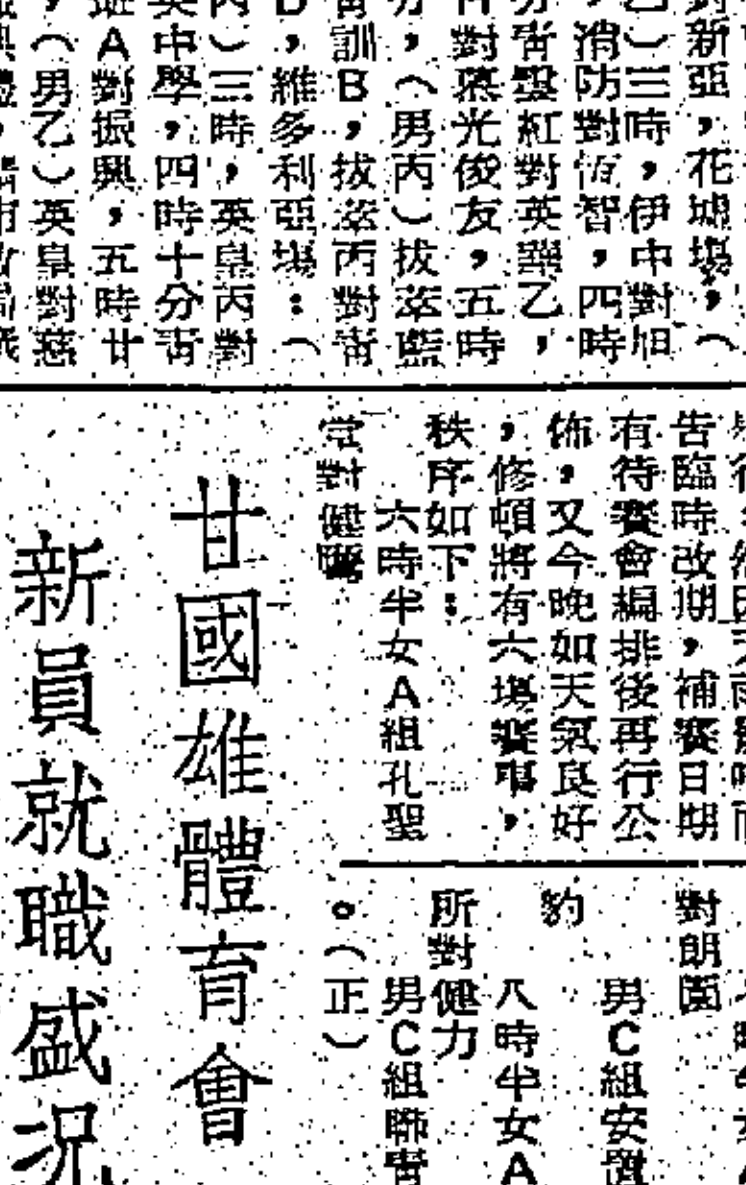 對新亞，花墟場，（
乙）三時，伊中對旭
，消防對恆智，四時
分青盟紅對英華乙，
對慕光俊友，五時
，（男丙）拔萃藍
訓B，拔萃丙對青
，維多利亞場：（
）三時，英皇丙對
英中學，四時十分青
A對振興，五時廿
（男乙）英皇對慈
告臨時改期，補賽日期
有待賽會編排後再行公
佈，又今晚如天氣良好
，修頓將有六場賽事，
秩序如下：
六時半女A組孔聖
堂對健
對朗園
男C組安
豹
八時半女A
所對健力
男C組聯青
。（正）
甘國雄體育會
新員就職盛況